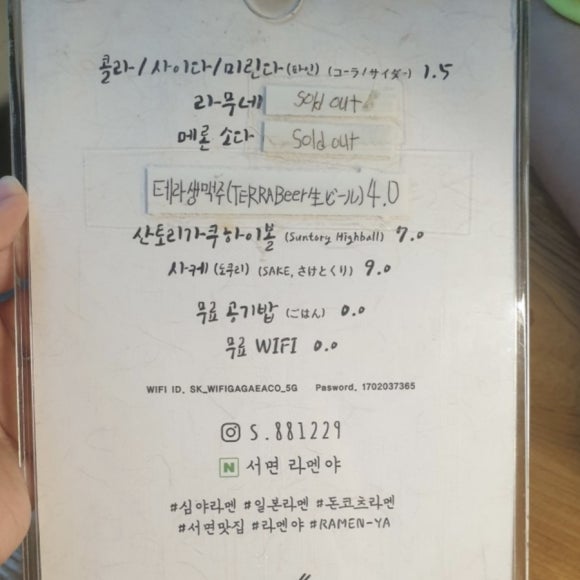 콜라/사이다/미린다(파인) (コーラ/サイダー) 1.5
라무네 Sold out
메론 소다 Sold out
테라생맥주(TERRABeer生ビール) 4.0
산토리가쿠하이볼 (Suntory Highball) 7.0
사케 (도쿠리) (SAKE, さけとくり) 9.0
무료 공기밥 (ごはん) 0.0
무료 WIFI 0.0
WIFI ID. SK_WIFIGAGAEACO_5G Pasword. 1702037365
S.881229
N 서면 라멘야
#심야라멘 #일본라멘 #돈코츠라멘
#서면맛집 #라멘야 #RAMEN-YA